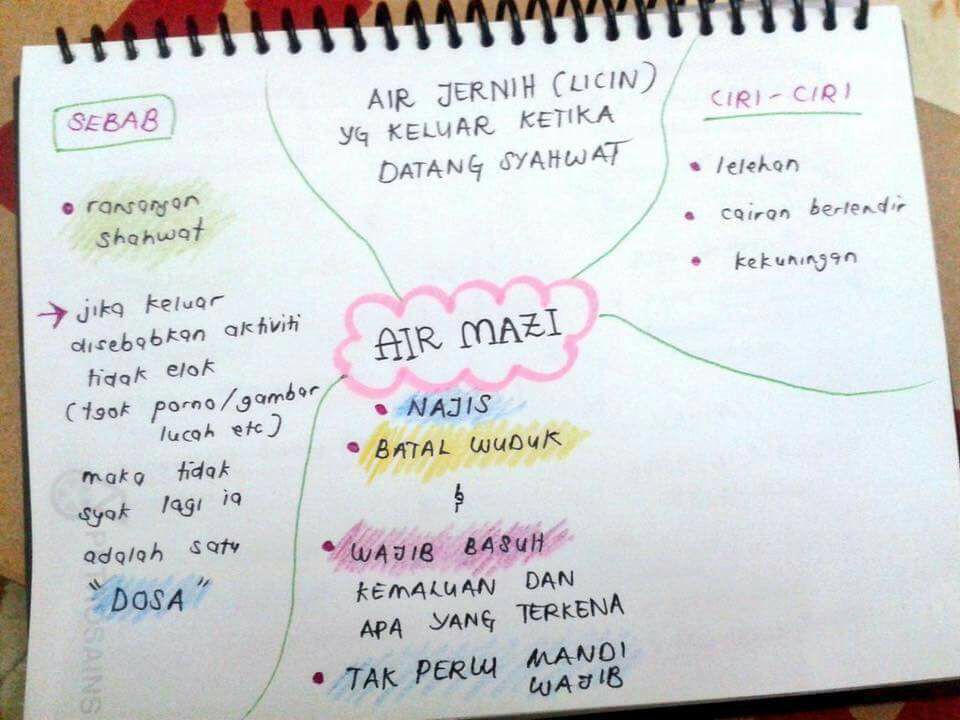 SEBAB
• ransangan
shahwat
→ jika keluar
disebabkan aktiviti
tidak elok
(tgok porno/gambar
lucah etc)
maka tidak
syak lagi ia
adalah satu
"DOSA"
AIR JERNIH (LICIN)
YG KELUAR KETIKA
DATANG SYAHWAT
CIRI-CIRI
• lelehan
• cairan berlendir
• kekuningan
AIR MAZI
• NAJIS
• BATAL WUDUK
&
• WAJIB BASUH
KEMALUAN DAN
APA YANG TERKENA
• TAK PERLU MANDI
WAJIB